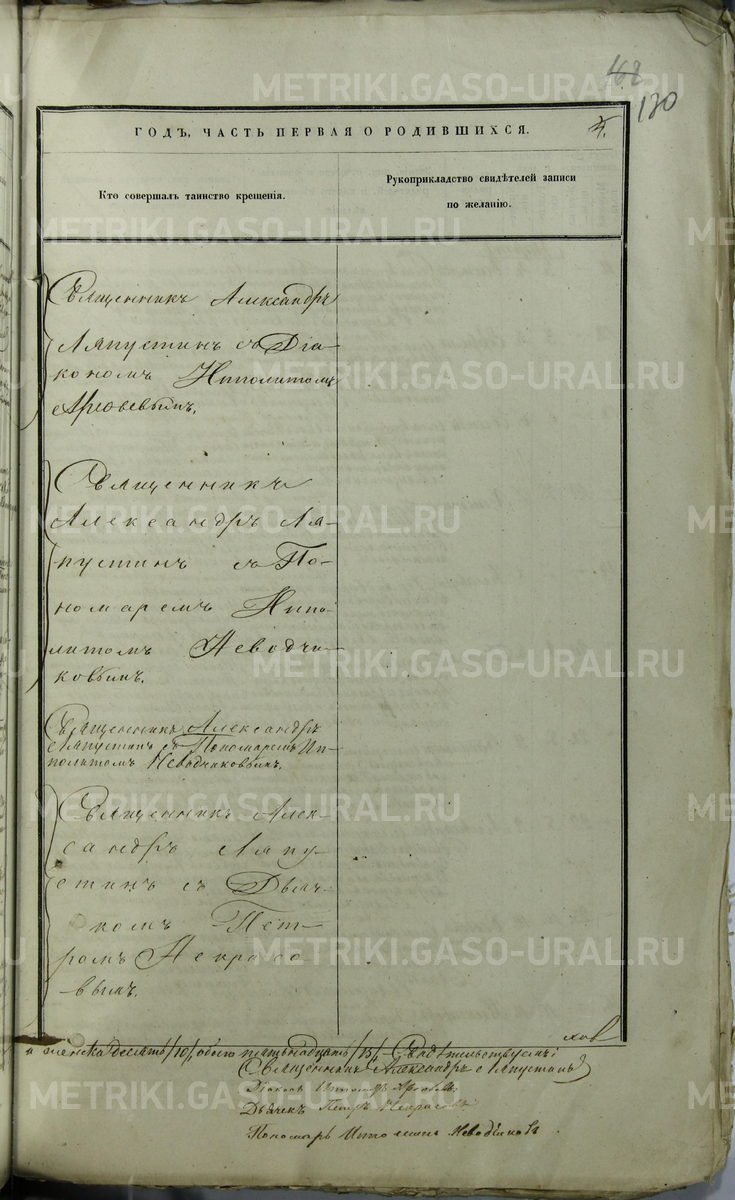 168
130
ГОДЪ, ЧАСТЬ ПЕРВАЯ О РОДИВШИХСЯ.
4.
Кто совершалъ таинство крещенія.
Рукоприкладство свидѣтелей записи
по желанію.
METRIKI.GASO-URAL.RU
Священникъ Александръ
Ляпустинъ съ Діа-
кономъ Ипполитомъ
Арефьевымъ.
Священникъ
Александръ Ля-
пустинъ съ По-
номаремъ Иппо-
литомъ Неводчи-
ковымъ.
Священникъ Александръ
Ляпустинъ съ Пономаремъ Ип-
политомъ Неводчиковымъ.
Священникъ Алек-
сандръ Ляпу-
стинъ съ Дьяч-
комъ Пет-
ромъ Некрасо-
вымъ.
женска десять /10/, обоего пятьнадцать /15/. Свидѣтельствуемъ:
Священникъ Александръ Ляпустинъ
Діаконъ
Дьячекъ Петръ Некрасовъ
Пономарь Неводчиковъ